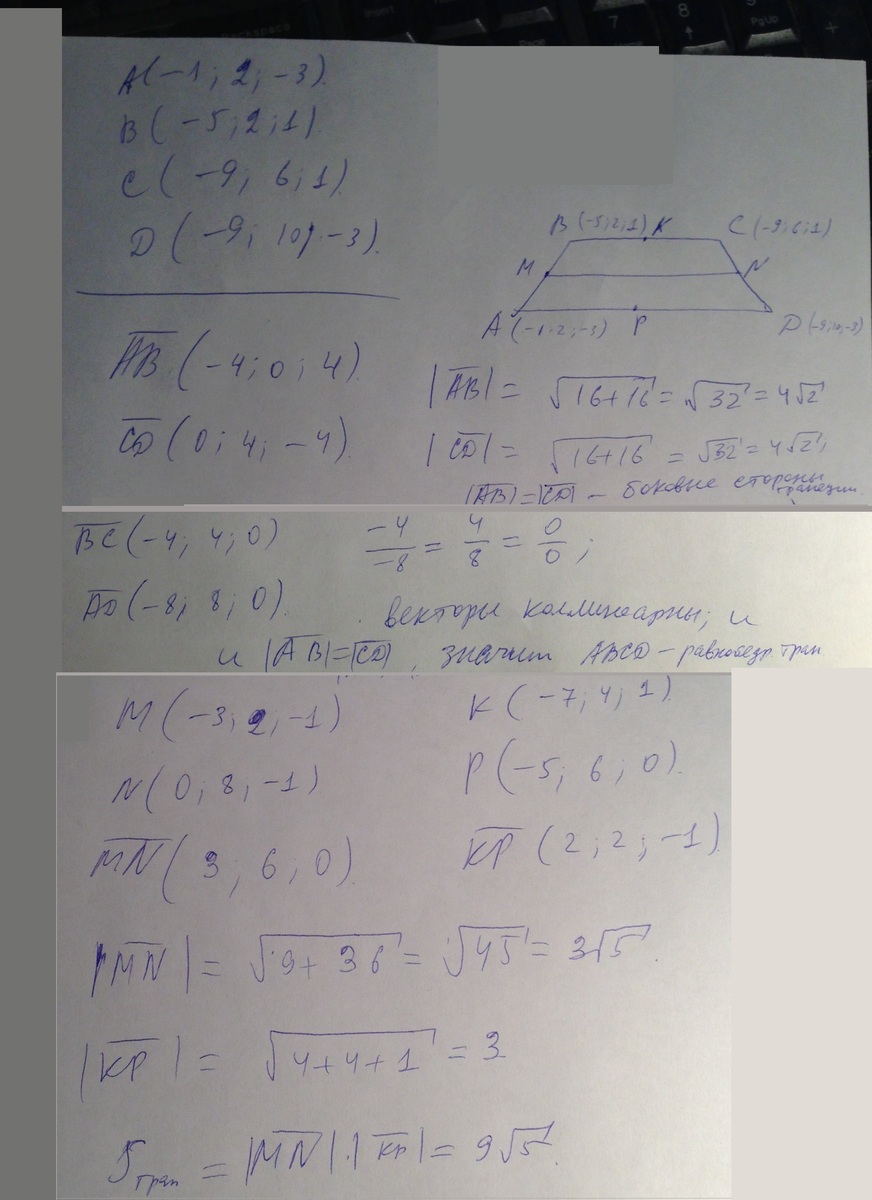 A(-1; 2; -3).
B(-5; 2; 1)
C(-9; 6; 1)
D(-9; 10; -3).
B(-5; 2; 1) K C(-9; 6; 1)
M N
A(-1 2; -3) P D(-9; 10; -3)
AB(-4; 0; 4)
CD(0; 4; -4).
|AB| = √16+16 = √32 = 4√2
|CD| = √16+16 = √32 = 4√2;
|AB|=|CD| - боковые стороны
трапеции.
BC(-4; 4; 0) -4/-8 = 4/8 = 0/0;
AD(-8; 8; 0). векторы коллинеарны; и
и |AB|=|CD|, значит ABCD - равнобедр. трап
M(-3; 2; -1) K(-7; 4; 1)
N(0; 8; -1) P(-5; 6; 0).
MN(3; 6; 0) KP(2; 2; -1)
|MN| = √9+36 = √45 = 3√5.
|KP| = √4+4+1 = 3
Sтрап = |MN|·|KP| = 9√5.